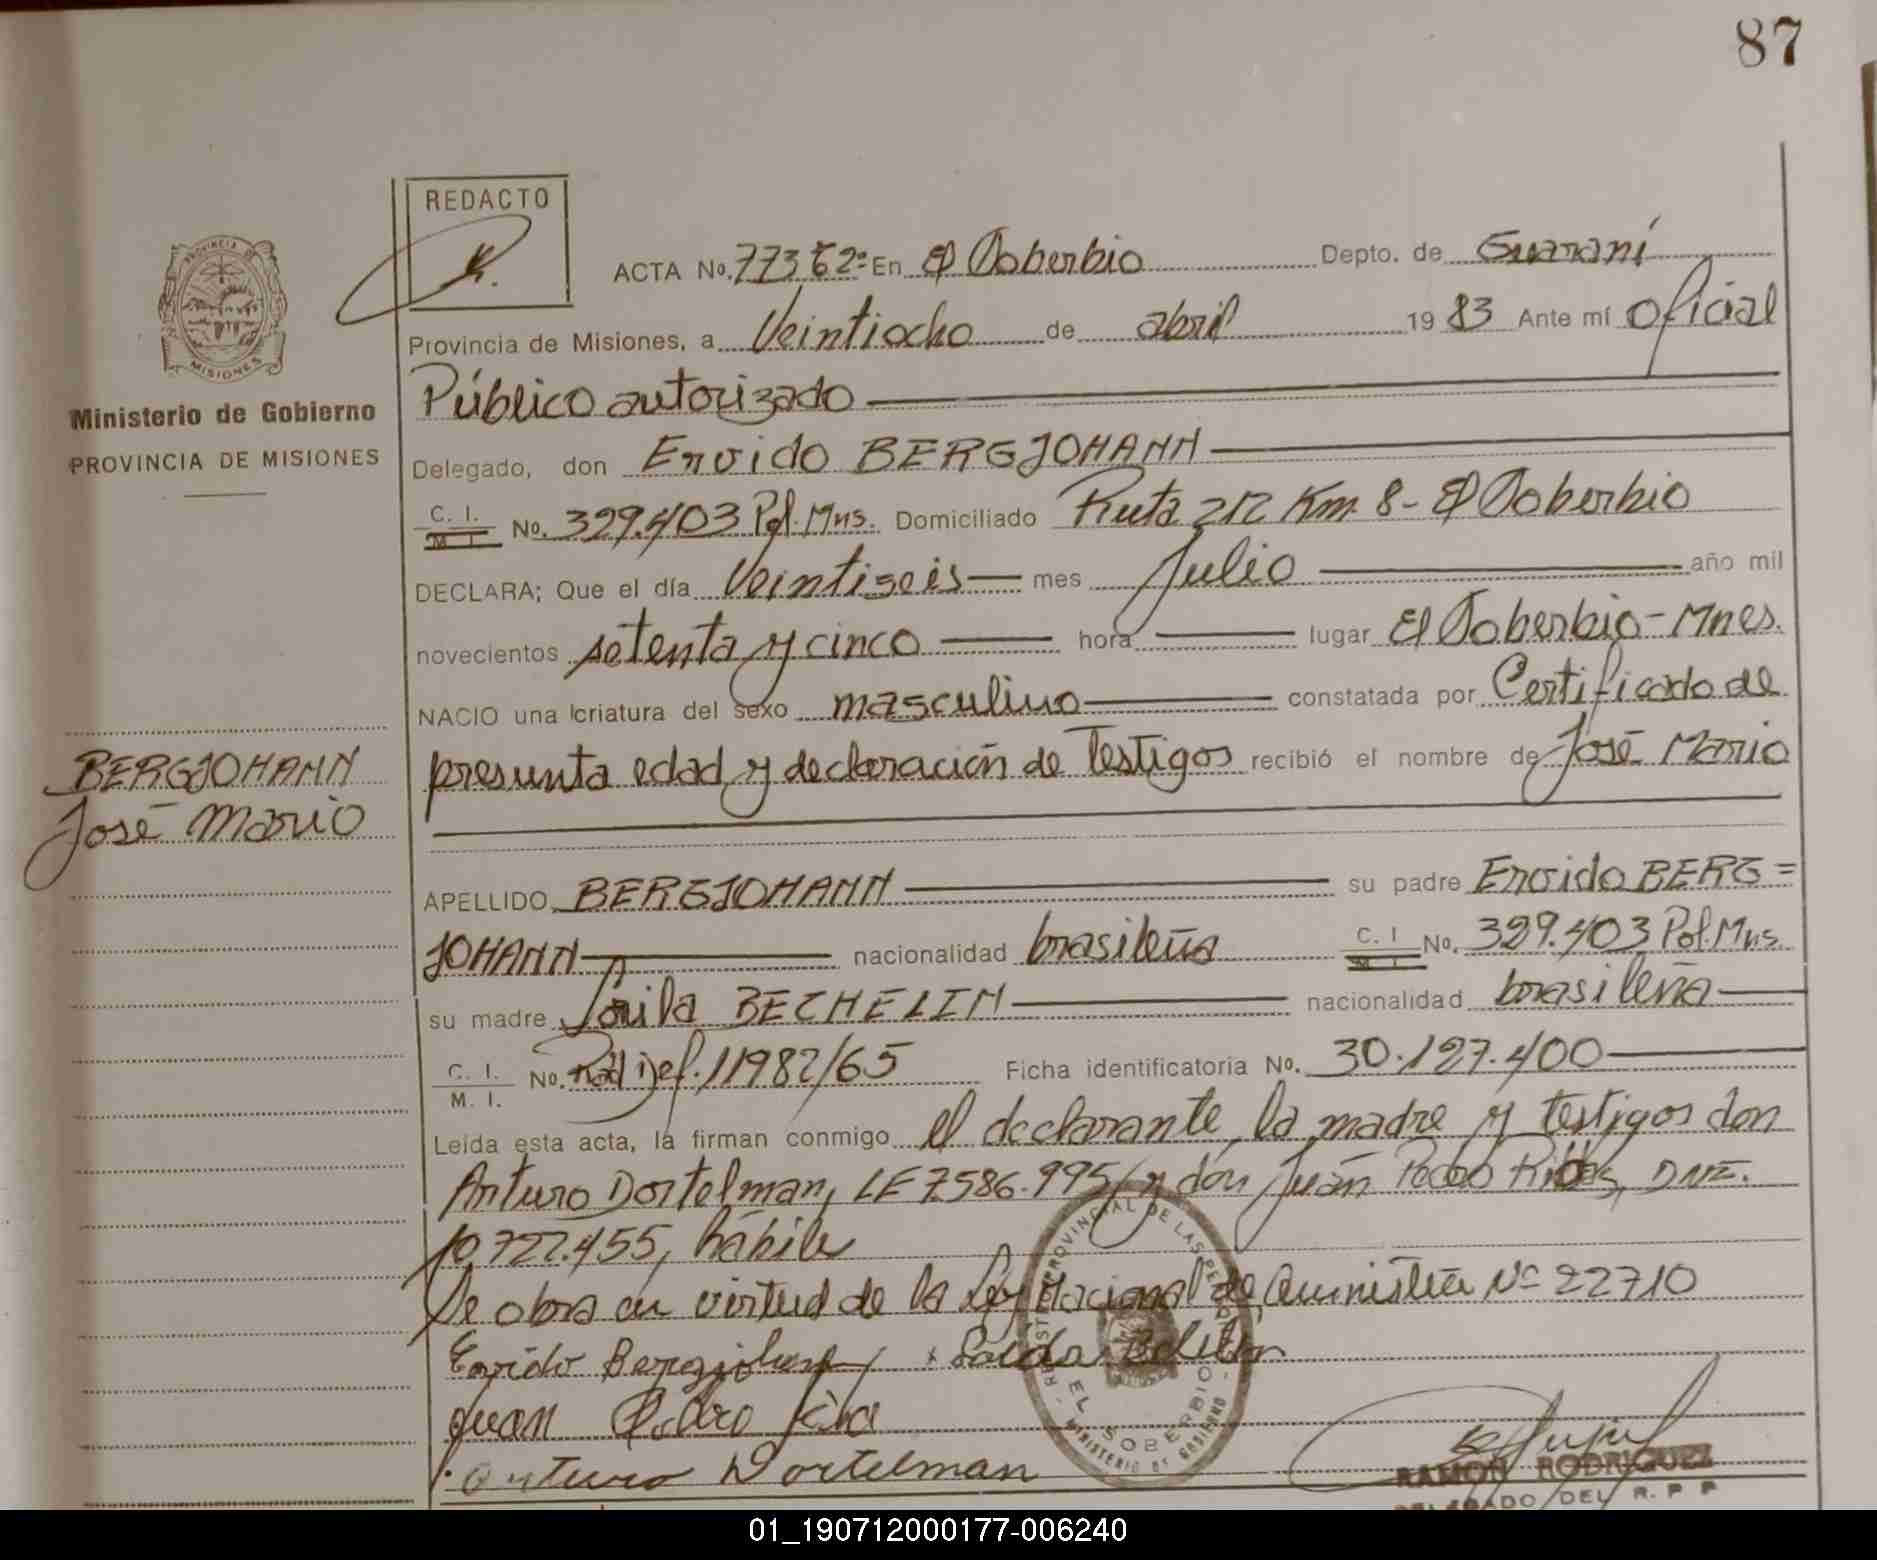 87
REDACTO
PROVINCIA DE
MISIONES
Ministerio de Gobierno
PROVINCIA DE MISIONES
ACTA No. 77362= En El Soberbio Depto. de Guaraní
Provincia de Misiones, a Veintiocho de abril 1983 Ante mí Oficial
Público autorizado
Delegado, don Enrido BERGJOHANN
C. I. M. I. No. 329.403 Pol. Mns. Domiciliado Ruta 212 Km 8- El Soberbio
DECLARA; Que el día Veintiseis mes Julio año mil
novecientos setenta y cinco hora lugar El Soberbio-Mnes.
NACIO una criatura del sexo masculino constatada por Certificado de
presunta edad y declaración de Testigos recibió el nombre de José Mario
BERGJOHANN
José Mario
APELLIDO BERGJOHANN su padre Enrido BERG=
JOHANN nacionalidad brasileña C. I M. I No. 329.403 Pol. Mns.
su madre BECHELIN nacionalidad brasileña
C. I. M. I. No. Rad Def. 11982/65 Ficha identificatoria No. 30.127.400
Leída esta acta, la firman conmigo el declarante, la madre y testigos don
Arturo Dortelman, LE 7.586.995/ y don Juan Pedro Ribas, DNI.
10.727.455, hábile
Se obra en virtud de la Ley Nacional de Amnistía Nº 22710
Juan Pedro
Arturo Dortelman
REGISTRO PROVINCIAL DE LAS PERSONAS
EL SOBERBIO
MINISTERIO DE GOBIERNO
RAMON RODRIGUEZ
DELEGADO DEL R. P. P
01_190712000177-006240